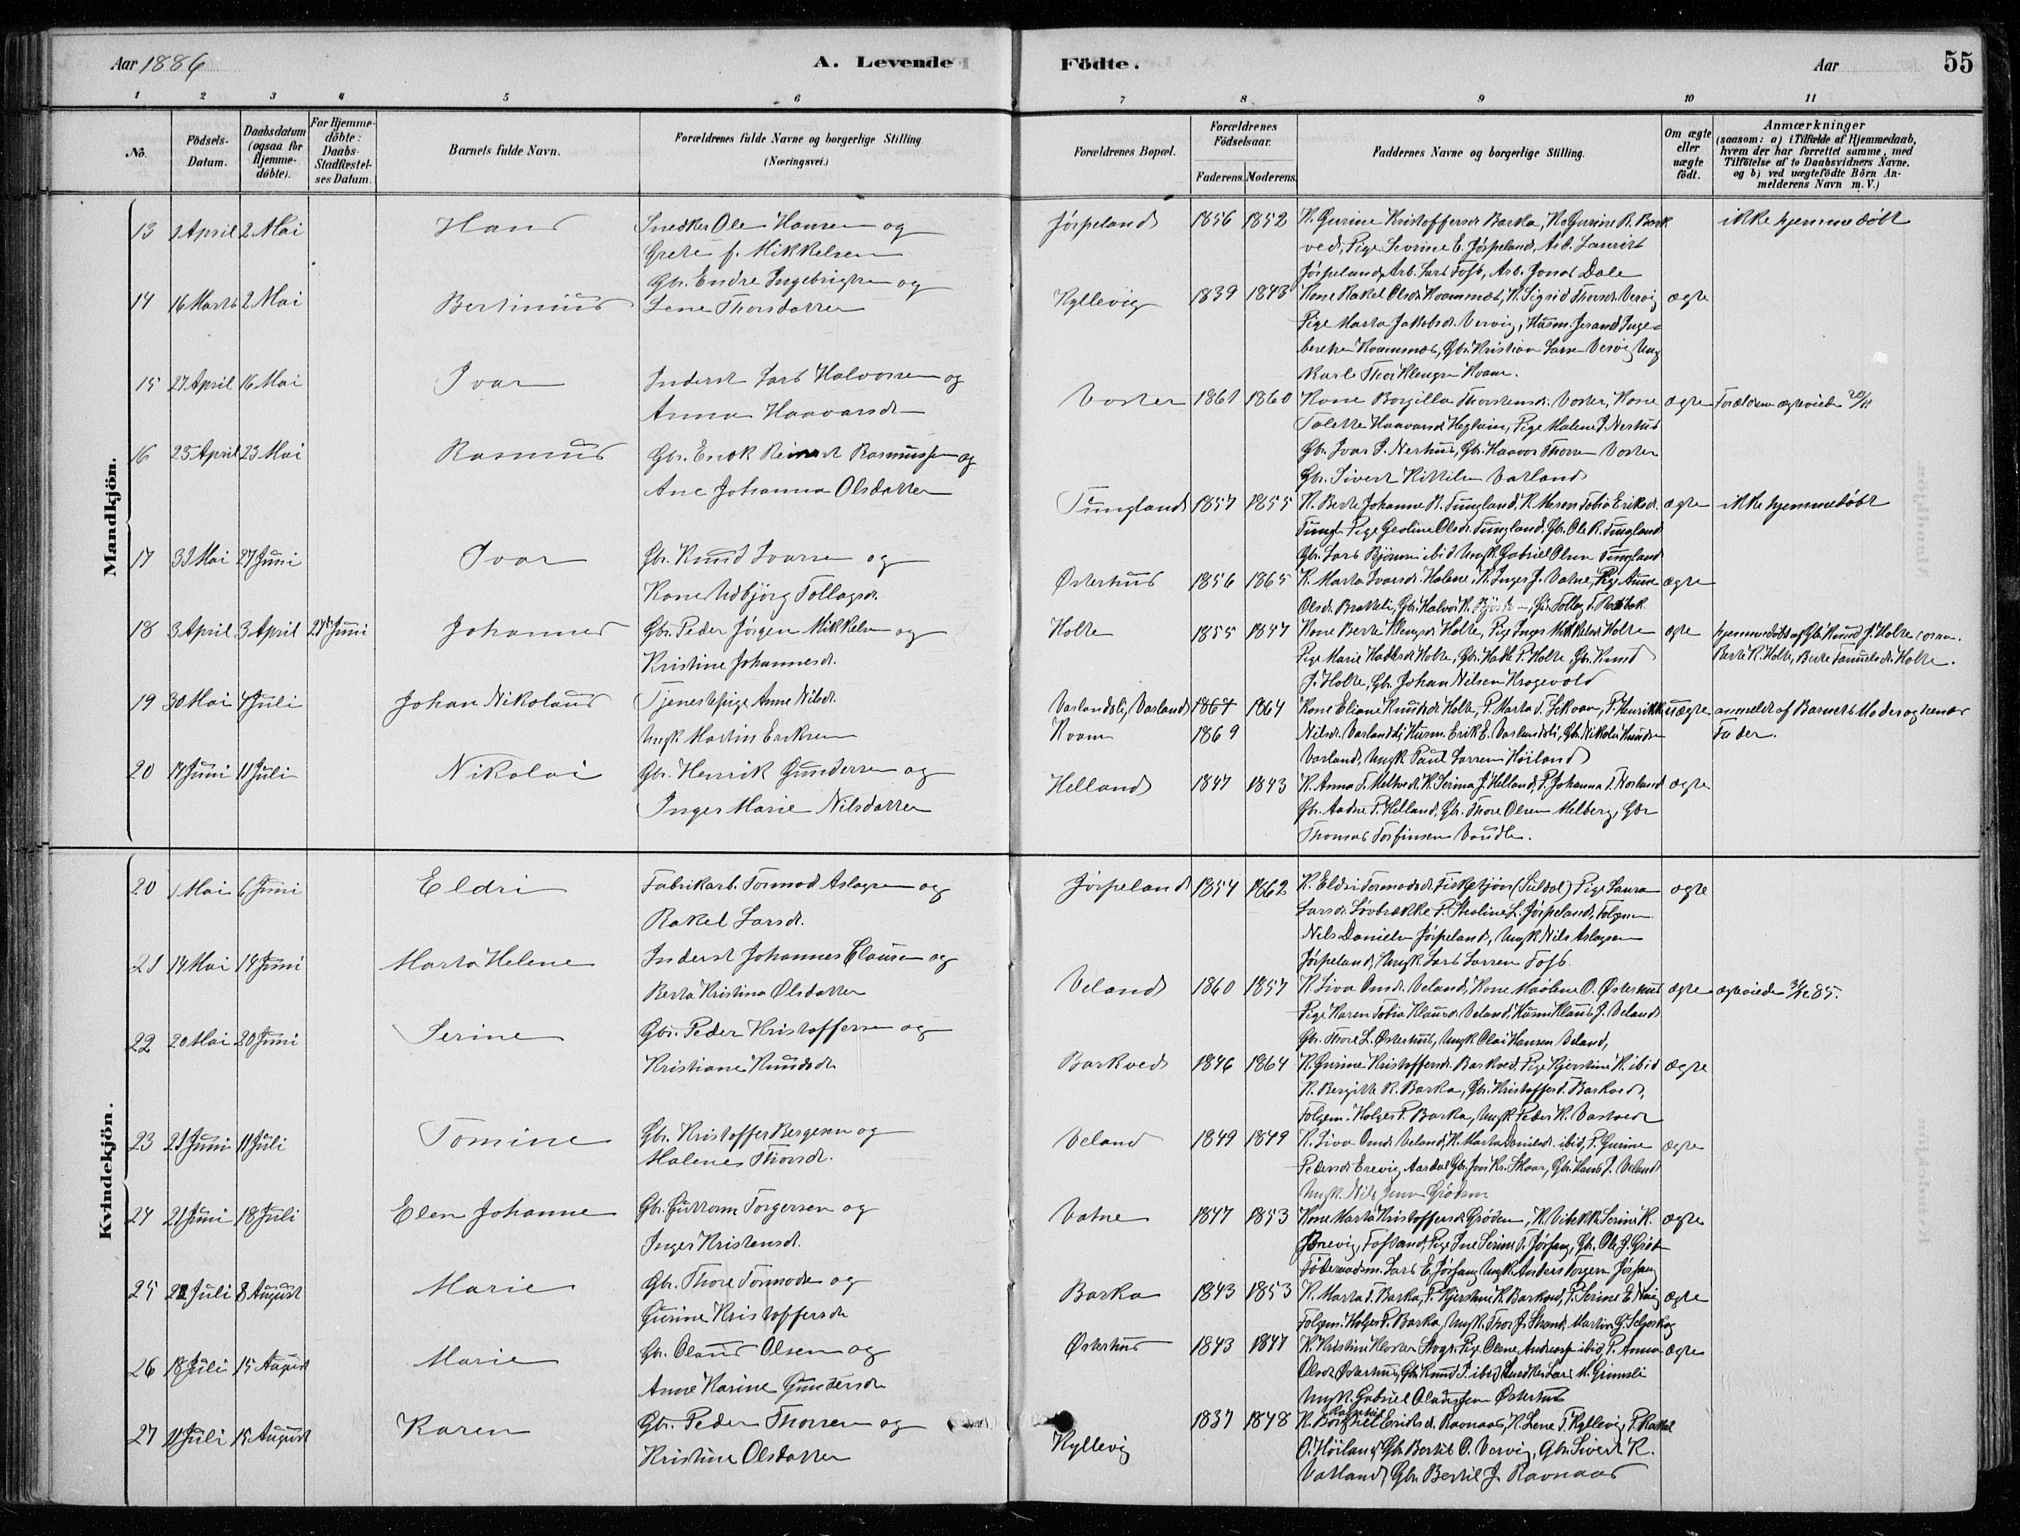 Aar 1886
A. Levende
Födte.
Aar
55
1 2 3 4 5 6 7 8 9 10 11
No.
Födsels-Datum.
Daabsdatum (ogsaa for Hjemme-döbte).
For Hjemme-döbte: Daabs-Stadfæstel-ses Datum.
Barnets fulde Navn.
Forældrenes fulde Navne og borgerlige Stilling (Næringsvei.)
Forældrenes Bopæl.
Forældrenes Födselsaar.
Faderens. Moderens.
Faddernes Navne og borgerlige Stilling.
Om ægte eller uægte födt.
Anmærkninger
(saasom: a) i Tilfælde af Hjemmedaab, hvem der har forrettet samme, med Tilföielse af to Daabsvidners Navne, og b) ved uægtefödte Börn An-melderens Navn m. V.)
Mandkjön.
13 1 April 2 Mai Hans Snedker Ole Hansen og
Grete f. Mikkelsen
Jørpeland 1856 1852 K. Gurine Kristoffersd. Barka, K. Gurine R. Bark
ved, Pige Severine E. Jørpeland, Arb. Laurits
Jørpeland, Arb. Lars Tofs, Arb. Jonas Dale
ikke hjemmedøbt
14 16 Marts 2 Mai Bertinius Gbr. Endre Ingebrigtsen og
Lene Thorsdatter
Kyllevig 1839 1843 Kone Rakel Olsd. Kvamnes, K. Sigrid Thorsd. Vervig ægte
Pige Marta Jakobsd. Vervig, Husm. Jerand Inge-
bretsen Kvamnes, Gbr. Kristian Larsen Vervig, Ung
Karle Thor Klengsen Kvam.
15 27 April 16 Mai Ivar Inderst Lars Halvorsen og
Anna Haavarsd.
Voster 1861 1860 Kone Borgilla Thorstensd. Voster, Kone ægte
Tolette Haavarsd. Pige Malene I. Nerhus
Gbr. Ivar I. Nerhus, Gbr. Haavor Thorsen Voster
Gbr. Sivert Kittilsen Vatland
Forældrene ægteviede
16 25 April 23 Mai Rasmus Gbr. Enok Reinert Rasmussen og
Ane Johanna Olsdatter
Tungland 1857 1855 K. Berte Johanne R. Tungland, K. Maren Tobia Eriksd. ægte ikke hjemmedøbt
Tungl. Pige Gesline Olsd. Tungland, Gbr. Ole R. Tungland
Gbr. Lars Bjørnsen ibid. Ungk. Gabriel Olsen Tungland
17 31 Mai 27 Juni Ivar Gbr. Knud Ivarsen og
Kone Udbjørg Tollagsd.
Østerhus 1856 1865 K. Marta Ivarsd. Halene, K. Inger J. Vatne, Pige Anne ægte
Olsd. Bratteli, Gbr. Halvor K.
18 3 April 3 April 27 Juni Johannes Gbr. Peder Jørgen Mikkelsen og
Kristine Johannesd.
Holte 1855 1847 Kone Berte Klengsd. Holte, Pige Inger Mikkelsd. Holte ægte
Pige Marie Hadlesd. Holte, Gbr. Hadle P. Holte, Gbr. Knud
J. Holte, Gbr. Johan Nilsen Krogevold
hjemmedøbt af Gbr. Knud J. Holte coram
Berte K. Holte, Berte Samuelsd. Holte.
19 30 Mai 4 Juli Johan Nikolaus Tjenestepige Anne Nilsd.
Ungk. Martin Eriksen
Varlandsli, Varland 1864 1864
Kvam 1869
Kone Eliane Knudsd. Holte, P. Marta T. P. Henrikke uægte
Nilsd. Varlandsli, Husm. Erik E. Varlandsli, Gbr. Nikolai Knudsen
Varland, Ungk. Paul Larsen Høiland
anmeldt af Barnets Moder og hendes
Fader.
20 14 Juni 11 Juli Nikolai Gbr. Henrik Gundersen og
Inger Marie Nilsdatter
Helland 1847 1843 K. Anna T. K. Serina J. Helland, P. Johanna T. Norland ægte
Gbr. Aadne P. Helland, Gbr. Thore Olsen Melberg, Gbr.
Thomas Torfinsen Vaudle.
Kvindekjön.
20 1 Mai 6 Juni Eldri Fabrikarb. Tormod Aslagsen og
Rakel Larsd.
Jørpeland 1854 1862 K. Eldri Tormodsd. Fisketjøn (Suldal) Pige Laura ægte
Larsd. Løvbrække P. Thaline L. Jørpeland, Folgem.
Nils Danielsen Jørpeland, Ungk. Nils Aslagsen
Jørpeland, Ungk. Lars Larsen Tofs.
21 14 Mai 14 Juni Marta Helene Inderst Johannes Clausen og
Berta Kristina Olsdatter
Veland 1860 1857 K. Siva Omd. Veland, Kone Malene O. Østerhus ægte ægteviede 85.
Pige Karen Tobia Klausd. Veland, Husm. Klaus J. Veland
Gbr. Thore L. Østerhus, Ungk. Olai Hansen Veland,
22 20 Mai 20 Juni Serine Gbr. Peder Kristoffersen og
Kristiane Knudsd.
Barkved 1846 1864 K. Gurine Kristoffersd. Barkved, Pige Kjerstine K. ibid ægte
K. Bergitte R. Barka, Gbr. Kristoffer d. Barkved,
Folgem. Holger P. Barka, Ungk. Peder K.
23 21 Juni 11 Juli Tomine Gbr. Kristoffer Bergesen og
Malene Thorsd.
Veland 1849 1849 K. Siva Omd. Veland, K. Marta Danielsd. ibid, P. Gurine ægte
Pedersd. Erevig, Aardal Gbr. Kr. Skaar, Gbr. Hans J. Veland
Ungk. Nils Grødem
24 21 Juni 18 Juli Elen Johanne Gbr. Guttorm Torgersen og
Inger Kristensd.
Vatne 1847 1853 Kone Marta Kristoffersd. Grødem, K. Serine K. ægte
Pige Ine Serine T. Jøssang, Gbr. Ole J.
Föderaadsm. Lars E. Jøssang Ungk. Anders Torgersen Jøssang
25 21 Juli 8 August Marie Gbr. Thore Tormodsen og
Gurine Kristoffersd.
Barka 1843 1853 K. Marta T. Barka, P. Kjerstine K. Barkved, P. Serine E. ægte
Folgem. Holger P. Barka, Ungk. Thor J. Strand, Martin G.
26 18 Juli 15 August Marie Gbr. Olaus Olsen og
Anne Karine Gundersd.
Østerhus 1843 1847 K. Kristine Pige Olene Andreasd. ibid, P. Anna ægte
Olsd. Østerhus, Gbr. Knud T. ibid, Snedker Lars M. Grimsli
Ungk. Gabriel Olaussen Østerhus
27 11 Juli 15 August Karen Gbr. Peder Thorsen og
Kristine Olsdatter
Kyllevig 1837 1848 K. Eriksd. Ravnaas, K. Lene T. Kyllevig, P. Rakel
O. Høiland, Gbr. Bertil O. Vervig, Gbr. Sivert K.
Vatland, Gbr. Bertil J. Ravnaas